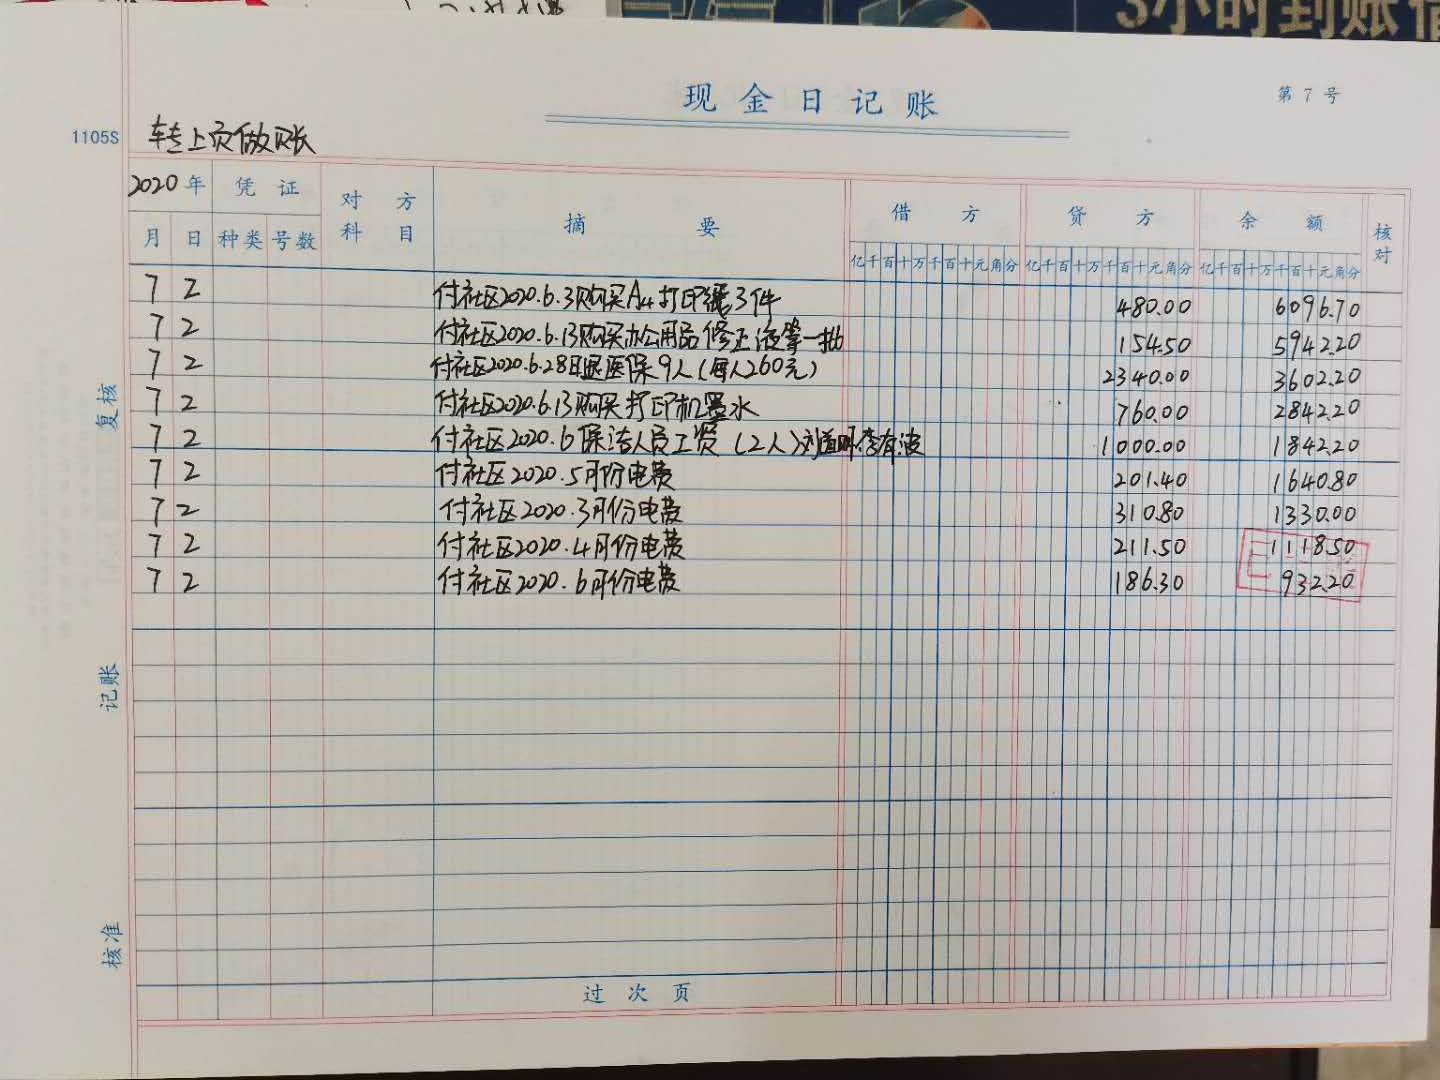 3小时到账
现金日记账
第 7 号
1105S
转上页做账
2020年 凭证 对方科目 摘要 借方 贷方 余额 核对
月 日 种类 号数 亿千百十万千百十元角分 亿千百十万千百十元角分 亿千百十万千百十元角分
7 2 付社区2020.6.3购买A4打印纸3件 480.00 6096.70
7 2 付社区2020.6.13购买办公用品修正液等一批 154.50 5942.20
7 2 付社区2020.6.28日退医保9人(每人260元) 2340.00 3602.20
7 2 付社区2020.6.13购买打印机墨水 760.00 2842.20
7 2 付社区2020.6保洁人员工资(2人) 1000.00 1842.20
7 2 付社区2020.5月份电费 201.40 1640.80
7 2 付社区2020.3月份电费 310.80 1330.00
7 2 付社区2020.4月份电费 211.50 1118.50
7 2 付社区2020.6月份电费 186.30 932.20
过次页
复核
记账
核准